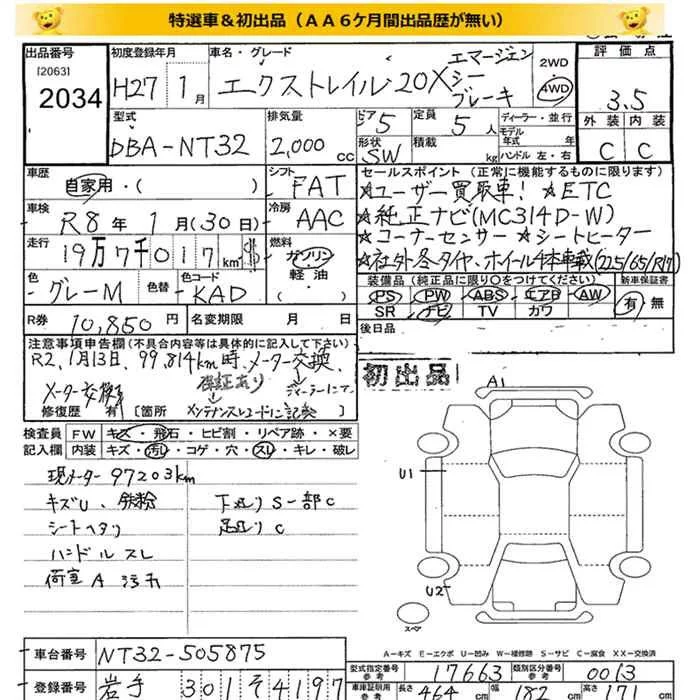 特選車＆初出品（ＡＡ６ケ月間出品歴が無い）
出品番号 初度登録年月 車名・グレード 評価点
[2063] 2034
H27 1月 エクストレイル20X エマージェンシーブレーキ 2WD 4WD 3.5
型式 排気量 ドア 5 定員 5人 ディーラー・並行 外装 内装
DBA-NT32 2,000cc 形状 SW 積載 kg モデル年式 年式 ハンドル 左・右 C C
車歴 シフト セールスポイント（正常に機能するものに限ります）
自家用・( ) FAT ☆ユーザー買取車! ☆ETC
車検 R8年 1月(30日) 冷房 AAC ☆純正ナビ(MC314D-W)
走行 19万7千017km 燃料 ガソリン ☆コーナーセンサー ☆シートヒーター
軽油 ( ) ☆社外冬タイヤ、ホイール4本車載(225/65/R17)
色 グレーM 色替 色コード KAD 装備品（純正品に限り○をつけてください） 新車保証書
PS PW ABS エアB AW 有 無
SR ナビ TV カワ
R券 10,850円 名変期限 月 日 後日品
注意事項申告欄（不具合内容等は具体的に記入して下さい）
R2,1月13日、99,814km時、メーター交換、 初出品
メーター交換 保証あり ディーラーにて
修復歴 有 [箇所 メンテナンスレコードに記載 ]
検査員 FW キズ・飛石・ヒビ割・リペア跡・×要
記入欄 内装 キズ・汚レ・コゲ・穴・スレ・キレ・破レ
現メーター 97203km
キズU、鉄粉 下廻りS一部C
シートヘタリ 足廻りC
ハンドルスレ
荷室A 汚れ
A1
U1
U2
スペア
A＝キズ E＝エクボ U＝凹み W＝補修跡 S＝サビ C＝腐食 XX＝交換済
車台番号 NT32-505875
登録番号 岩手 301 そ 4197
型式指定番号 参考 17663 類別区分番号 参考 0013
車庫証明用 参考 長さ 464 cm 幅 182 cm 高さ